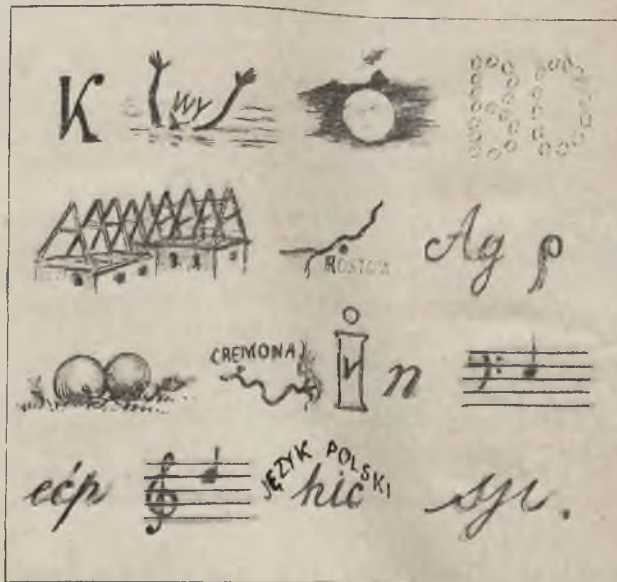 K Wy BO
ROSTOW Ag p
CREMONA i V n
ećp JĘZYK POLSKI hic syi.